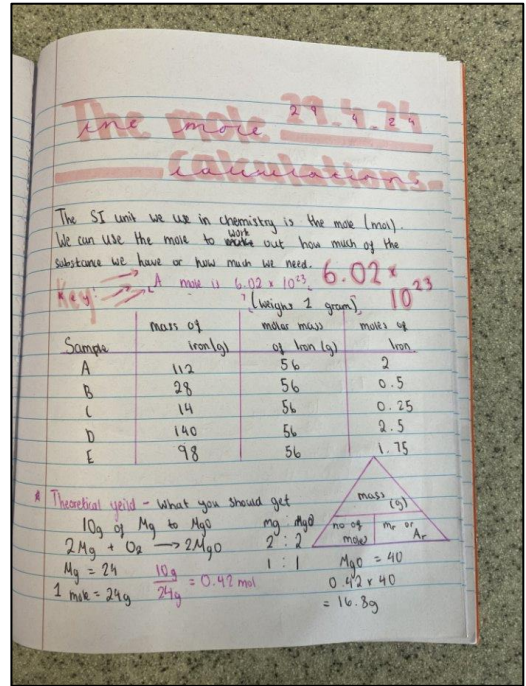 The mole 29.4.24
calculations.
The SI unit we use in chemistry is the mole (mol).
We can use the mole to work out how much of the
substance we have or how much we need.
Key: A mole is 6.02 x 10²³. 6.02 x 10²³
(weighs 1 gram)
Sample mass of Iron(g) molar mass of Iron (g) moles of Iron
A 112 56 2
B 28 56 0.5
C 14 56 0.25
D 140 56 2.5
E 98 56 1.75
* Theoretical yeild - What you should get
10g of Mg to MgO
2Mg + O₂ → 2MgO
Mg = 24
1 mole = 24g
10g/24g = 0.42 mol
mg : MgO
2 : 2
1 : 1
mass (g)
no of moles
Mr or Ar
MgO = 40
0.42 x 40
= 16.8g